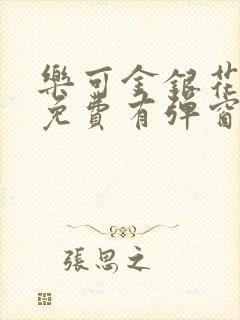 樂可金銀花
免費有彈窗
張思之